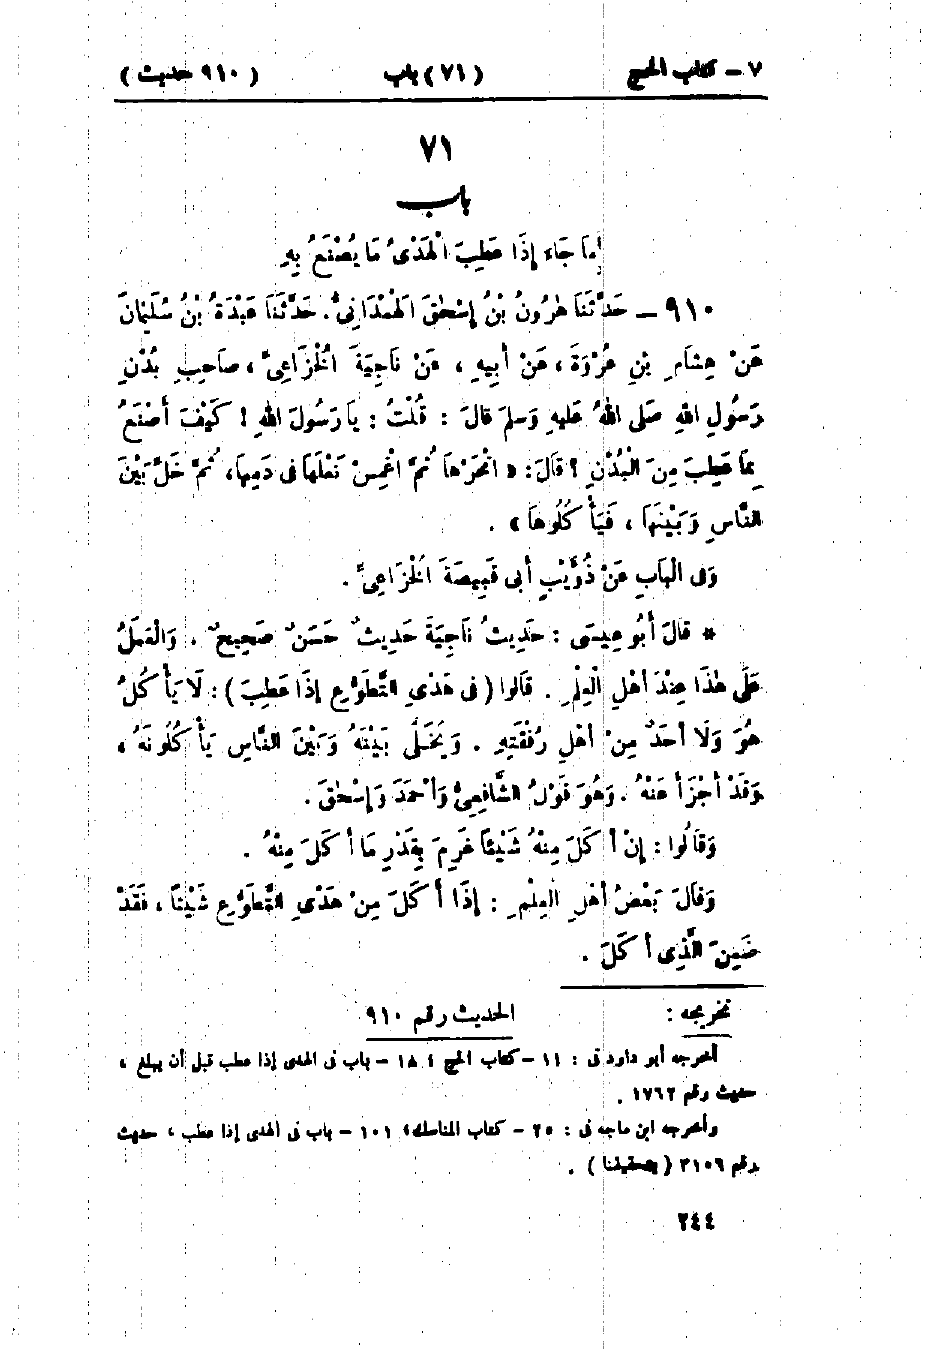 ٧ – كتاب الحج (٧١) باب (٩١٠ حديث)
٧١
باب
مَا جَاءَ إِذَا عَطِبَ الْهَدْىُ مَا يُصْنَعُ بِهِ
٩١٠ – حَدَّثَنَا هٰرُونُ بْنُ إِسْحٰقَ الْهَمْدَانِىُّ. حَدَّثَنَا عَبْدَةُ بْنُ سُلَيْمَانَ
عَنْ هِشَامِ بْنِ عُرْوَةَ، عَنْ أَبِيهِ، عَنْ نَاجِيَةَ الْخُزَاعِىِّ، صَاحِبِ بُدْنِ
رَسُولِ اللهِ صَلى اللهُ عَليهِ وَسلمَ قالَ : قُلْتُ : يَا رَسُولَ اللهِ ! كَيْفَ أَصْنَعُ
بِمَا عَطِبَ مِنَ الْبُدْنِ ؟ قَالَ : « انْحَرْهَا ثُمَّ اغْمِسْ نَعْلَهَا فى دَمِهَا، ثُمَّ خَلِّ بَيْنَ
النَّاسِ وَبَيْنَهَا ، فَيَأْكُلُوهَا » .
وَفى الْبَابِ عَنْ ذُوَيْبٍ أَبِى قَبِيصَةَ الْخُزَاعِىِّ .
* قالَ أَبُو عِيسَى : حَدِيثُ نَاجِيَةَ حَدِيثٌ حَسَنٌ صَحِيحٌ . وَالْعَمَلُ
عَلَى هٰذَا عِنْدَ أَهْلِ الْعِلْمِ . قَالوا ( فى هَدْىِ التَّطَوُّعِ إِذَا عَطِبَ ) : لَا يَأْكُلُ
هُوَ وَلَا أَحَدٌ مِنْ أَهْلِ رُفْقَتِهِ . وَيُخَلَّى بَيْنَهُ وَبَيْنَ النَّاسِ يَأْكُلُونَهُ ،
وَقَدْ أَجْزَأَ عَنْهُ . وَهُوَ قَوْلُ الشَّافِعِىِّ وَأَحْمَدَ وَإِسْحٰقَ .
وَقَالُوا : إِنْ أَكَلَ مِنْهُ شَيْئًا غَرِمَ بِقَدْرِ مَا أَكَلَ مِنْهُ .
وَقَالَ بَعْضُ أَهْلِ الْعِلْمِ : إِذَا أَكَلَ مِنْ هَدْىِ التَّطَوُّعِ شَيْئًا ، فَقَدْ
ضَمِنَ الَّذِى أَكَلَ .
تخريجه : الحديث رقم ٩١٠
أخرجه أبو داود فى : ١١ – كتاب الحج ٤ ١٨ – باب فى الهدى إذا عطب قبل أن يبلغ ،
حديث رقم ١٧٦٢ .
وأخرجه ابن ماجه فى : ٢٥ – كتاب المناسك، ١٠١ – باب فى الهدى إذا عطب ، حديث
رقم ٣١٠٦ ( بتحقيقنا ) .
٢٤٤